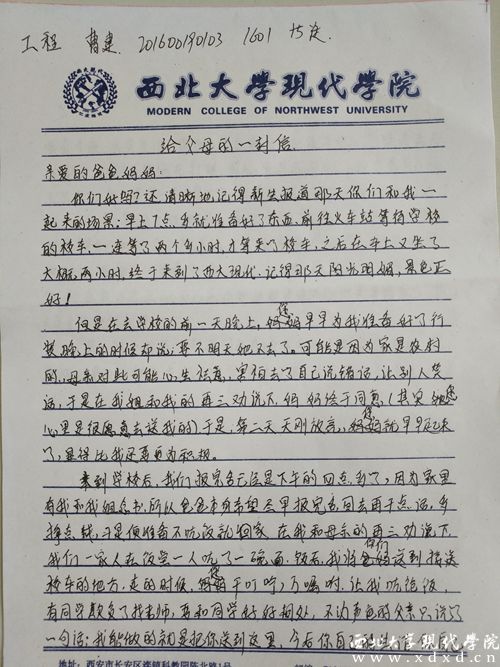 工程 曹建 201600190103 1601
西北大學現代學院
MODERN COLLEGE OF NORTHWEST UNIVERSITY
给父母的一封信
亲爱的爸爸妈妈:
你们好吗?还清晰地记得新生报道那天你们和我一
起来的场景;早上7点多就准备好了东西,前往火车站等待学校
的校车,一连等了两个多小时,才等来了校车,之后在车上又坐了
大概两小时,终于来到了西大现代.记得那天阳光明媚,景色正
好!
但是在去学校的前一天晚上,妈妈早早为我准备好了行
装,晚上的时候却说:要不明天她不去了。可能是因为家是农村
的,母亲对此可能心生怯意,害怕去了自己说错话,让别人笑
话,于是在我姐和我的再三劝说下,妈妈终于同意,(其实她
心里是很愿意去送我的)于是,第二天天刚放亮,妈妈就早早起来
了,显得比我还要更为积极。
来到学校后,我们报完名已经是下午的四点多了,因为家里
有我和我姐念书,所以爸爸本来希望尽早报完名回去再干点活,多
挣点钱,于是便准备不吃饭就回家.在我和母亲的再三劝说下,
我们一家人在饭堂一人吃了一碗面.饭后,我将爸妈送到接送
校车的地方,走的时候,妈妈千叮咛,万嘱咐,让我吃饱饭,
有困难多了找老师,要和同学好好相处,不动声色的父亲只说了
一句话:我能做的就是把你送到这里,今后你自己的
地址:西安市长安区滦镇科教园陈北路1号
西北大学现代学院
www.xdxd.cn